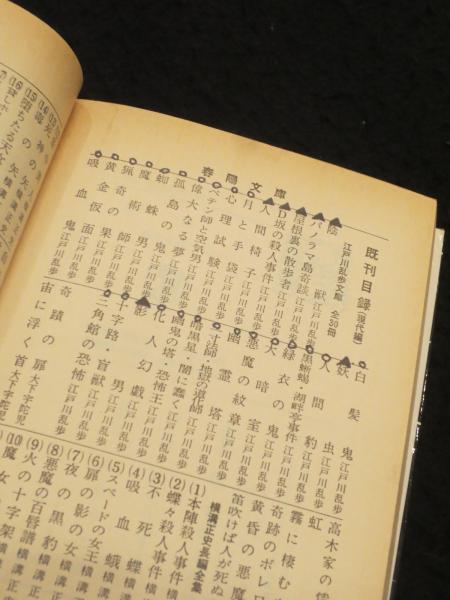 春陽文庫
既刊目録[現代編]
江戸川乱歩文庫 全30冊
陰獣 江戸川乱歩
パノラマ島奇談 江戸川乱歩
屋根裏の散歩者 江戸川乱歩
D坂の殺人事件 江戸川乱歩
人間椅子 江戸川乱歩
月と手袋 江戸川乱歩
心理試験 江戸川乱歩
ペテン師と空気男 江戸川乱歩
偉大なる夢 江戸川乱歩
孤島の鬼 江戸川乱歩
蜘蛛男 江戸川乱歩
魔術師 江戸川乱歩
猟奇の果 江戸川乱歩
黄金仮面 江戸川乱歩
吸血鬼 江戸川乱歩
白髪鬼 江戸川乱歩
妖虫 江戸川乱歩
人間豹 江戸川乱歩
黒蜥蜴・湖畔亭事件 江戸川乱歩
緑衣の鬼 江戸川乱歩
大暗室 江戸川乱歩
悪魔の紋章 江戸川乱歩
幽霊塔 江戸川乱歩
一寸法師
暗黒星・闇に蠢く 江戸川乱歩
化人幻戯 江戸川乱歩
影男 江戸川乱歩
十字路・盲獣 江戸川乱歩
三角館の恐怖 江戸川乱歩
奇蹟の扉 大下宇陀児
宙に浮く首 大下宇陀児
高木家の
虹
霧に棲む
奇跡のボレロ
黄昏の悪魔
笛吹けば人が死ぬ
横溝正史長編全集
(1)本陣殺人事件
(2)蝶々殺人事件
(3)不死蝶
(4)吸血蛾
(5)スペードの女王
(6)扉の影の女
(7)夜の黒豹
(8)悪魔の百唇譜
(9)火の十字架
(10)魔女
(15)
(16)堕ちたる天女